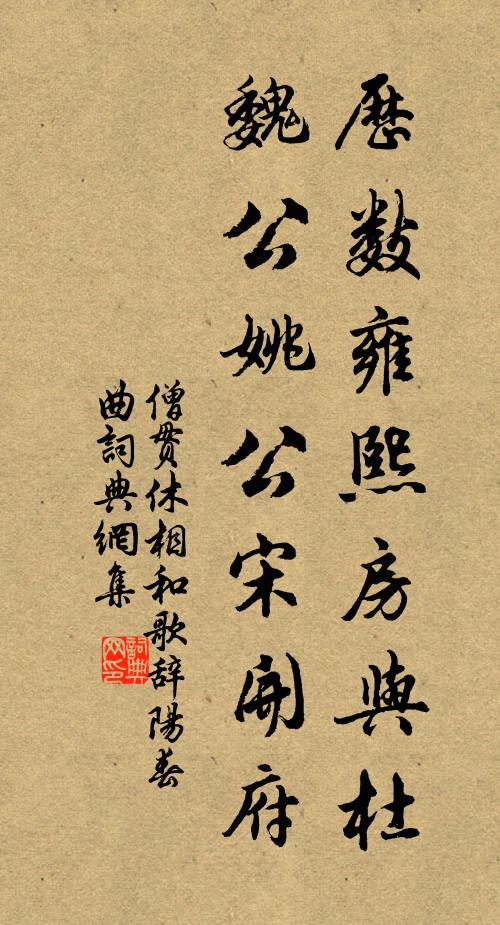 歷數雍熙房與杜
魏公姚公宋開府
僧貫休相和歌辭陽春
曲詞典網集
詞典
网印